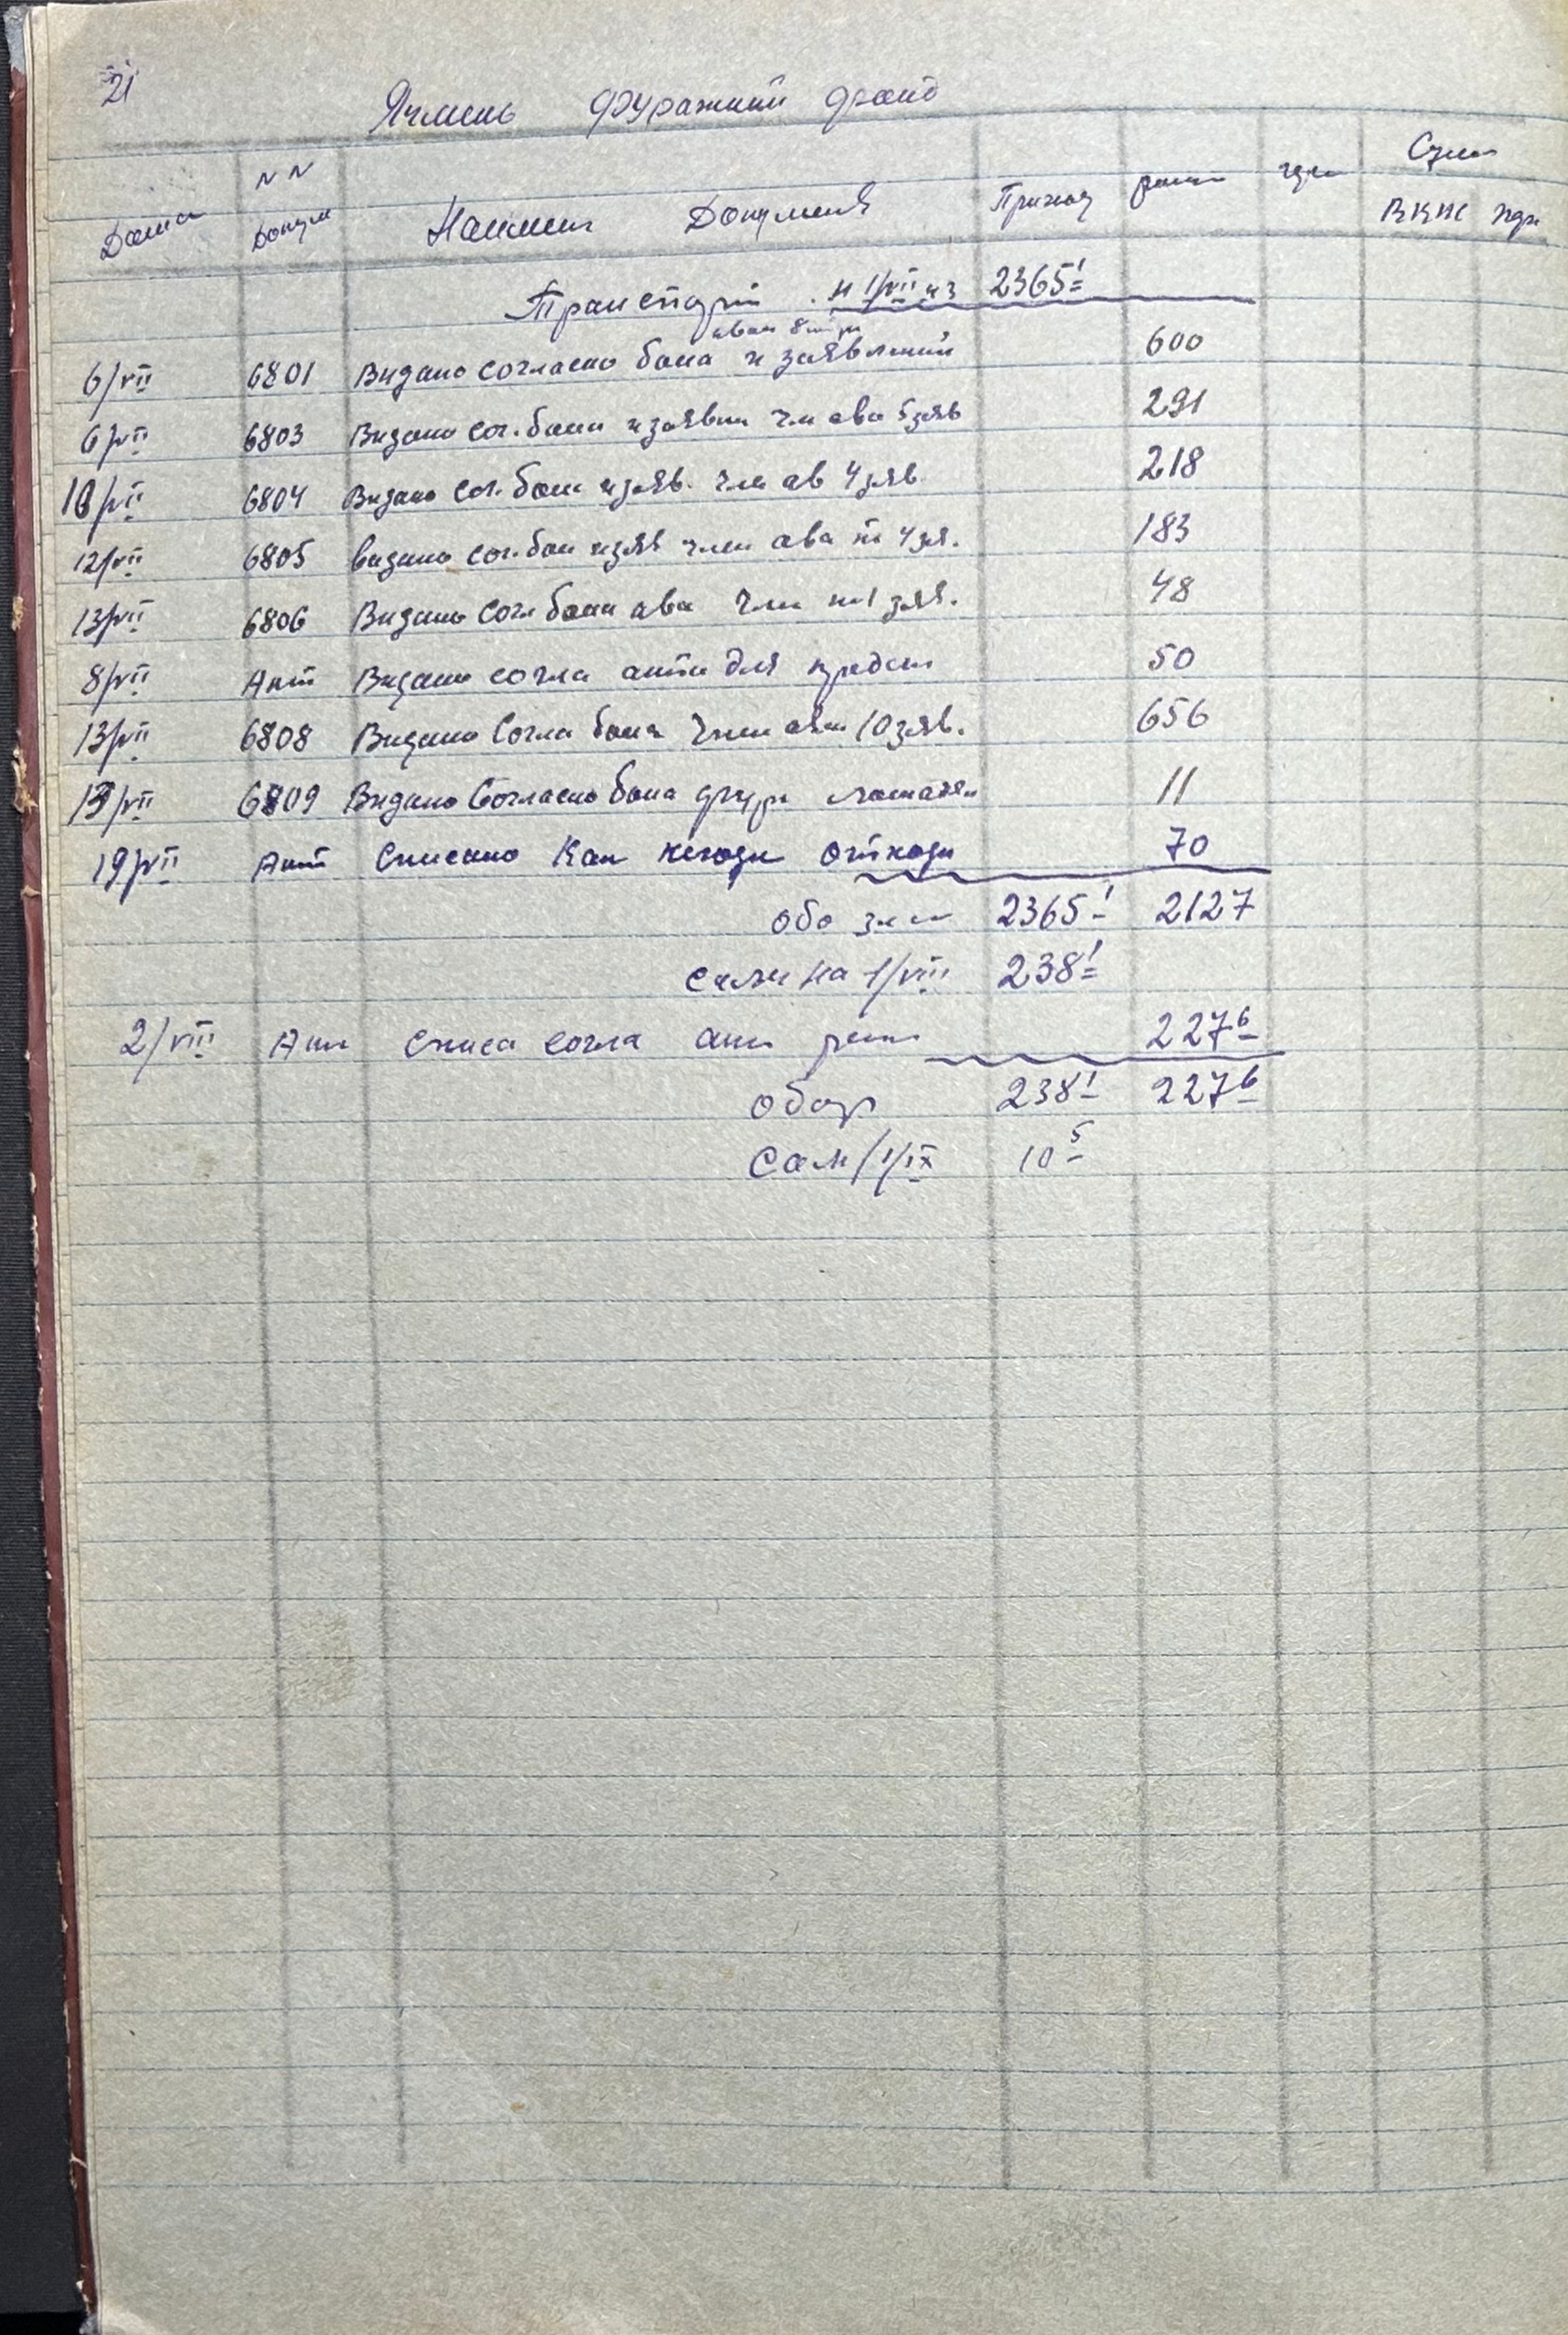 21
Ячмень фуражний фонд
Дата NN Докум Наимен Документ Приход расх Сум
Транспорт н 1/VII 2365 1
аван
6/VII 6801 Видано согласно бона и заявлений 600
6/VII 6803 Видано сог. бона и заявки чле ава 5 заяв 291
10/VII 6804 Видано сог. бона и заяв. чле ав 4 заяв. 218
12/VII 6805 видано сог. бон и заяв член ава 4 за. 183
13/VII 6806 Видано согл бона ава чле 1 заяв. 48
8/VII Акт Видано согла акта для 50
13/VII 6808 Видано согла бона член аван 10 заяв. 656
13/VII 6809 Видано Согласно бона фур лошадям 11
19/VII Акт Списано Как негодн отходи 70
обо 2365 1 2127
Сальн на 1/VIII 238 1
2/VIII Акт Списа согла акт 227 6
обор 238 1 227 6
Саль 1/IX 10 5